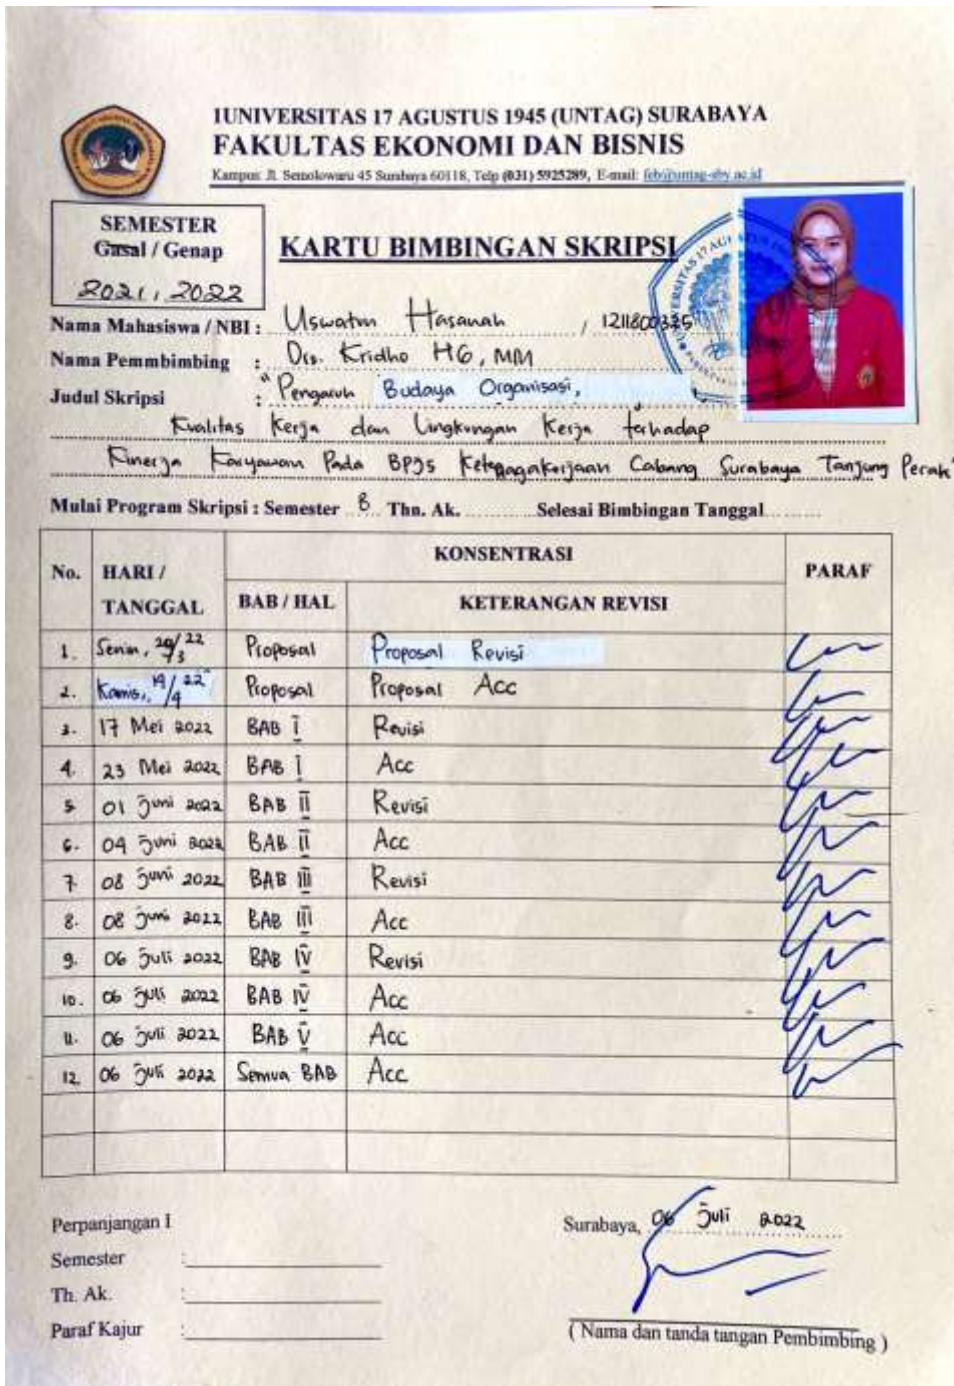 1UNIVERSITAS 17 AGUSTUS 1945 (UNTAG) SURABAYA
FAKULTAS EKONOMI DAN BISNIS
Kampus: Jl. Semolowaru 45 Surabaya 60118, Telp (031) 5925289, E-mail: feb@untag-sby.ac.id
SEMESTER
Gasal / Genap
2021, 2022
KARTU BIMBINGAN SKRIPSI
Nama Mahasiswa / NBI : Uswatun Hasanah / 1211800325
Nama Pemmbimbing : Drs. Kridho HG, MM
Judul Skripsi : "Pengaruh Budaya Organisasi,
Kualitas Kerja dan Lingkungan Kerja terhadap
Kinerja Karyawan Pada BPJS Cabang Surabaya Tanjung Perak"
Mulai Program Skripsi : Semester 8 Thn. Ak. Selesai Bimbingan Tanggal
No. HARI / TANGGAL KONSENTRASI PARAF
BAB / HAL KETERANGAN REVISI
1. Senin, /3 22 Proposal Proposal Revisi
2. Kamis, 19/4 22 Proposal Proposal Acc
3. 17 Mei 2022 BAB I Revisi
4. 23 Mei 2022 BAB I Acc
5. 01 Juni 2022 BAB II Revisi
6. 04 Juni 2022 BAB II Acc
7. 08 Juni 2022 BAB III Revisi
8. 08 Juni 2022 BAB III Acc
9. 06 Juli 2022 BAB IV Revisi
10. 06 Juli 2022 BAB IV Acc
11. 06 Juli 2022 BAB V Acc
12. 06 Juli 2022 Semua BAB Acc
Perpanjangan I
Surabaya, 06 Juli 2022
Semester :
Th. Ak. :
Paraf Kajur :
( Nama dan tanda tangan Pembimbing )